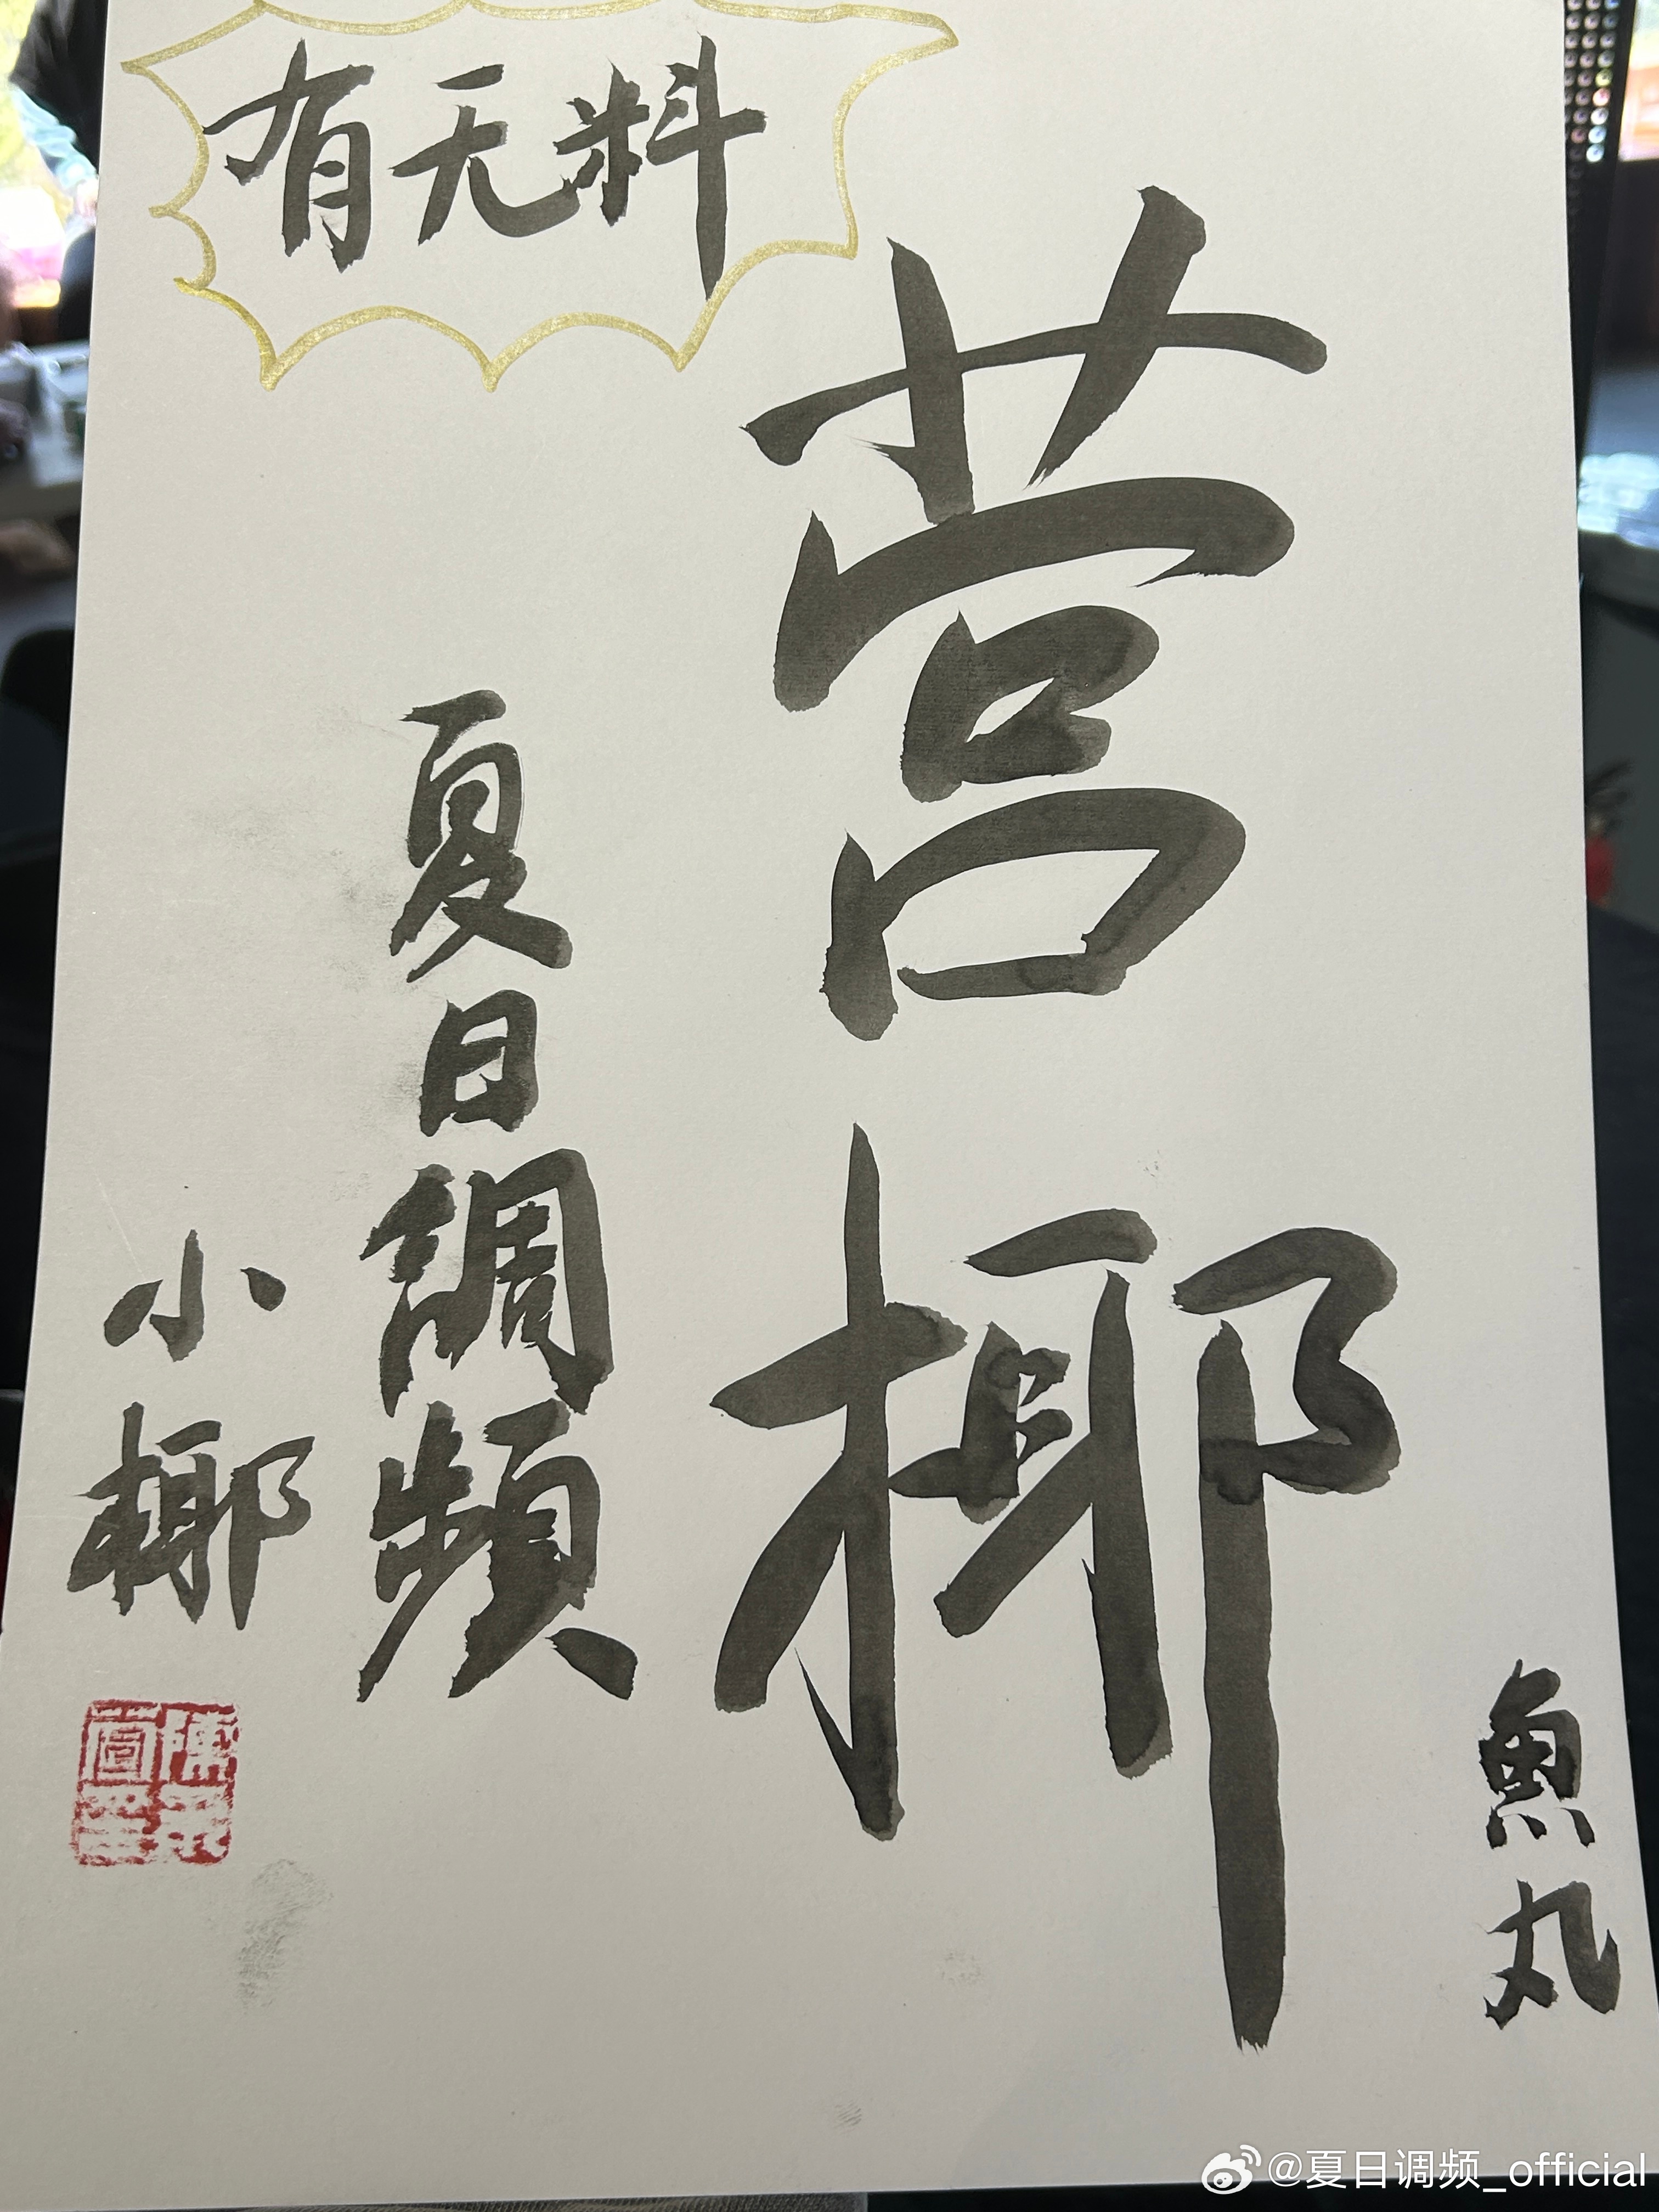 有无料
营椰
夏日調頻
小椰
魚丸
@夏日调频_official